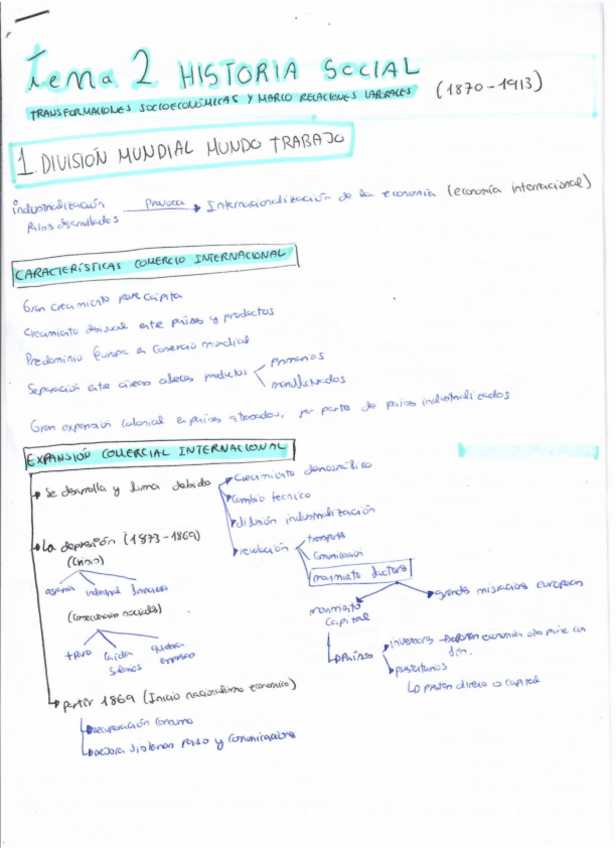 Tema 2 HISTORIA SOCIAL
TRANSFORMACIONES SOCIOECONÓMICAS Y MARCO RELACIONES LABORALES (1870-1913)
1. DIVISIÓN MUNDIAL MUNDO TRABAJO
industrialización países desarrollados Provoca Internacionalización de la economía (economía internacional)
CARACTERÍSTICAS COMERCIO INTERNACIONAL
Gran crecimiento per cápita
Crecimiento desigual entre países y productos
Predominio Europa en Comercio mundial
Separación entre áreas productos
primarios
manufacturados
Gran expansión colonial en países atrasados, por parte de países industrializados
EXPANSIÓN COMERCIAL INTERNACIONAL
Se desarrolla y debido
Crecimiento demográfico
Cambio técnico
difusión industrialización
revolución
transporte
Comunicación
movimiento factores
La depresión (1873-1869)
(Crisis)
agraria industrial financiera
(consecuencias sociales)
+ paro
Caída salarios
quiebra empresas
movimiento Capital
grandes migraciones europeas
Países
inversores economía otro país con
prestatarios
Lo prestan dinero o capital
partir 1869 (Inicio nacionalismo económico)
recuperación consumo
mejora sistemas y comunicaciones